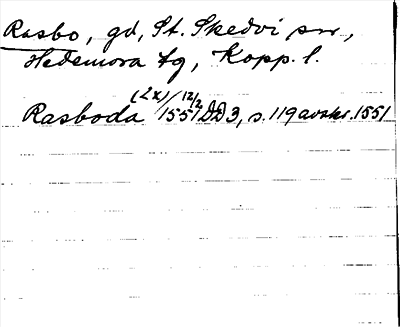 Rasbo, gd, St. Skedvi sn,
Hedemora tg, Kopp. l.
Rasboda (2x) 12/2 1551 DD 3, s. 119 avskr. 1551